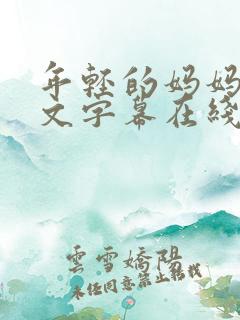 年轻的妈妈
文字幕在线
雲雪嬌陽
未经同意禁止转载